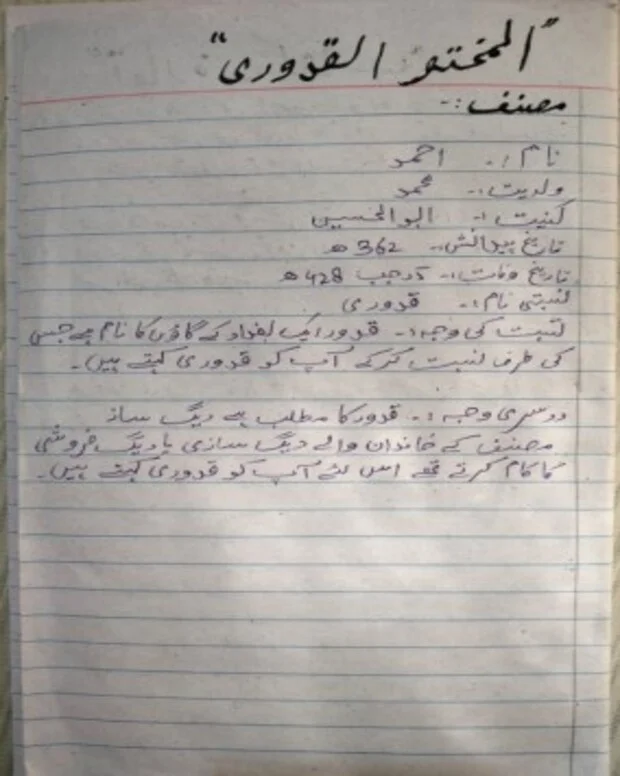 "المختصر القدوری"
مصنف :-
نام :- احمد
ولدیت :- محمد
کنیت :- ابوالحسین
تاریخ پیدائش :- 362 ھ
تاریخ وفات :- 5 رجب 428 ھ
نسبتی نام :- قدوری
نسبت کی وجہ :- قدور ایک بغداد کے گاؤں کا نام ہے جس
کی طرف نسبت کرکے آپ کو قدوری کہتے ہیں۔
دوسری وجہ :- قدور کا مطلب ہے دیگ ساز
مصنف کے خاندان والے دیگ سازی یا دیگ فروشی
کا کام کرتے تھے اس لئے آپ کو قدوری کہتے ہیں۔